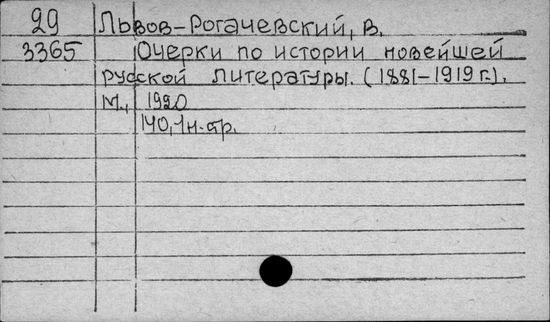 29 Львов-Рогачевский, В.
3365 Очерки по истории новейшей
русской литературы. (1881-1919 г.).
М., 1920
140, 1н. стр.